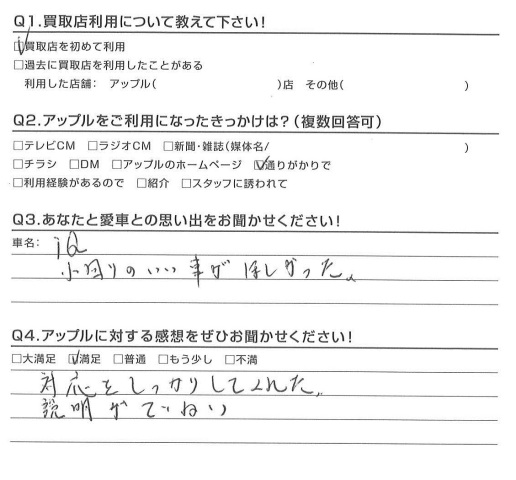 Q1.買取店利用について教えて下さい!
☑買取店を初めて利用
□過去に買取店を利用したことがある
利用した店舗: アップル( )店 その他( )
Q2.アップルをご利用になったきっかけは?(複数回答可)
□テレビCM □ラジオCM □新聞・雑誌(媒体名/ )
□チラシ □DM □アップルのホームページ ☑通りがかりで
□利用経験があるので □紹介 □スタッフに誘われて
Q3.あなたと愛車との思い出をお聞かせください!
車名: iQ
小回りのいい車がほしかった。
Q4.アップルに対する感想をぜひお聞かせください!
□大満足 ☑満足 □普通 □もう少し □不満
対応をしっかりしてくれた。
説明がていねい